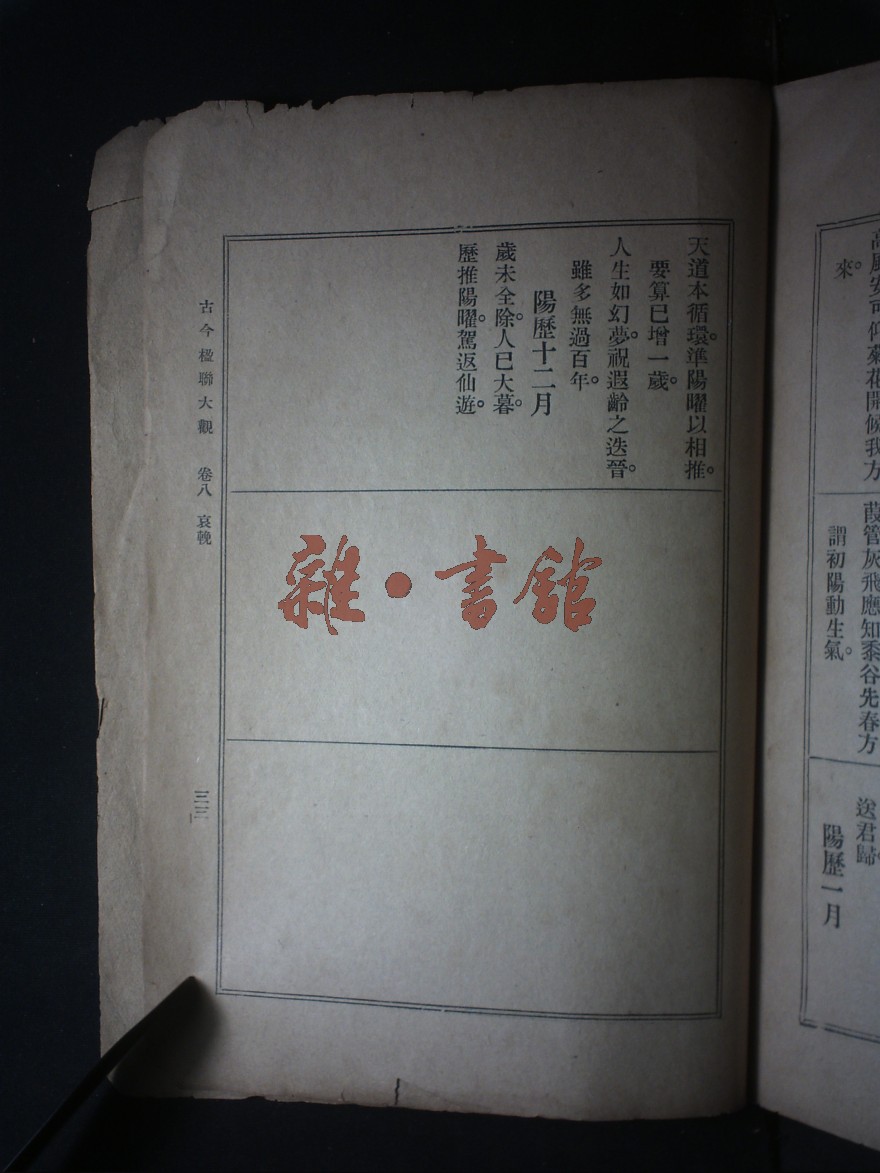 高風安可仰菊花開候我方
來。
葭管灰飛應知黍谷先春方
謂初陽動生氣。
送君歸。
陽歷一月
天道本循環。準陽曜以相推。
要算已增一歲。
人生如幻夢。祝遐齡之迭晉。
雖多無過百年。
陽歷十二月
歲未全除。人已大暮。
歷推陽曜。駕返仙遊。
古今楹聯大觀 卷八 哀輓
三三
雜·書館